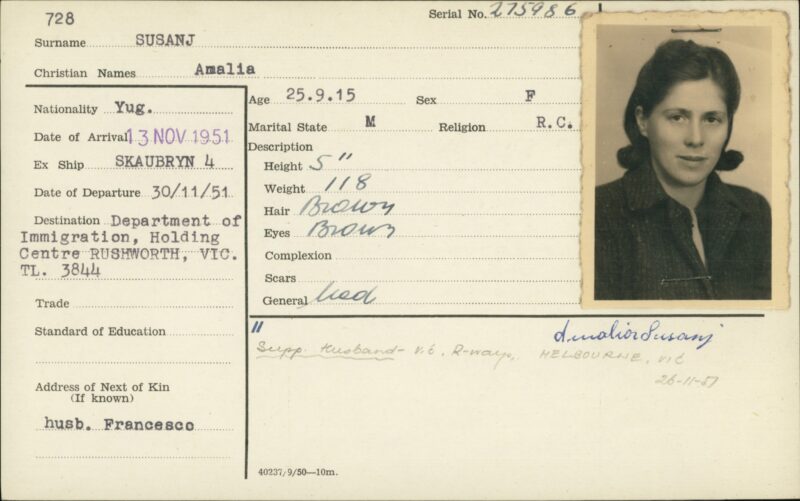 728
Serial No. 275986
Surname SUSANJ
Christian Names Amalia
Nationality Yug.
Date of Arrival 13 NOV 1951
Ex Ship SKAUBRYN 4
Date of Departure 30/11/51
Destination Department of
Immigration, Holding
Centre RUSHWORTH, VIC.
TL. 3844
Trade
Standard of Education
Address of Next of Kin
(If known)
husb. Francesco
Age 25.9.15 Sex F
Marital State M Religion R.C.
Description
Height 5"
Weight 118
Hair Brown
Eyes Brown
Complexion
Scars
General
Amalia Susanj
" Supp. Husband - Vic. R-ways, MELBOURNE, Vic
26-11-51
40237/9/50—10m.